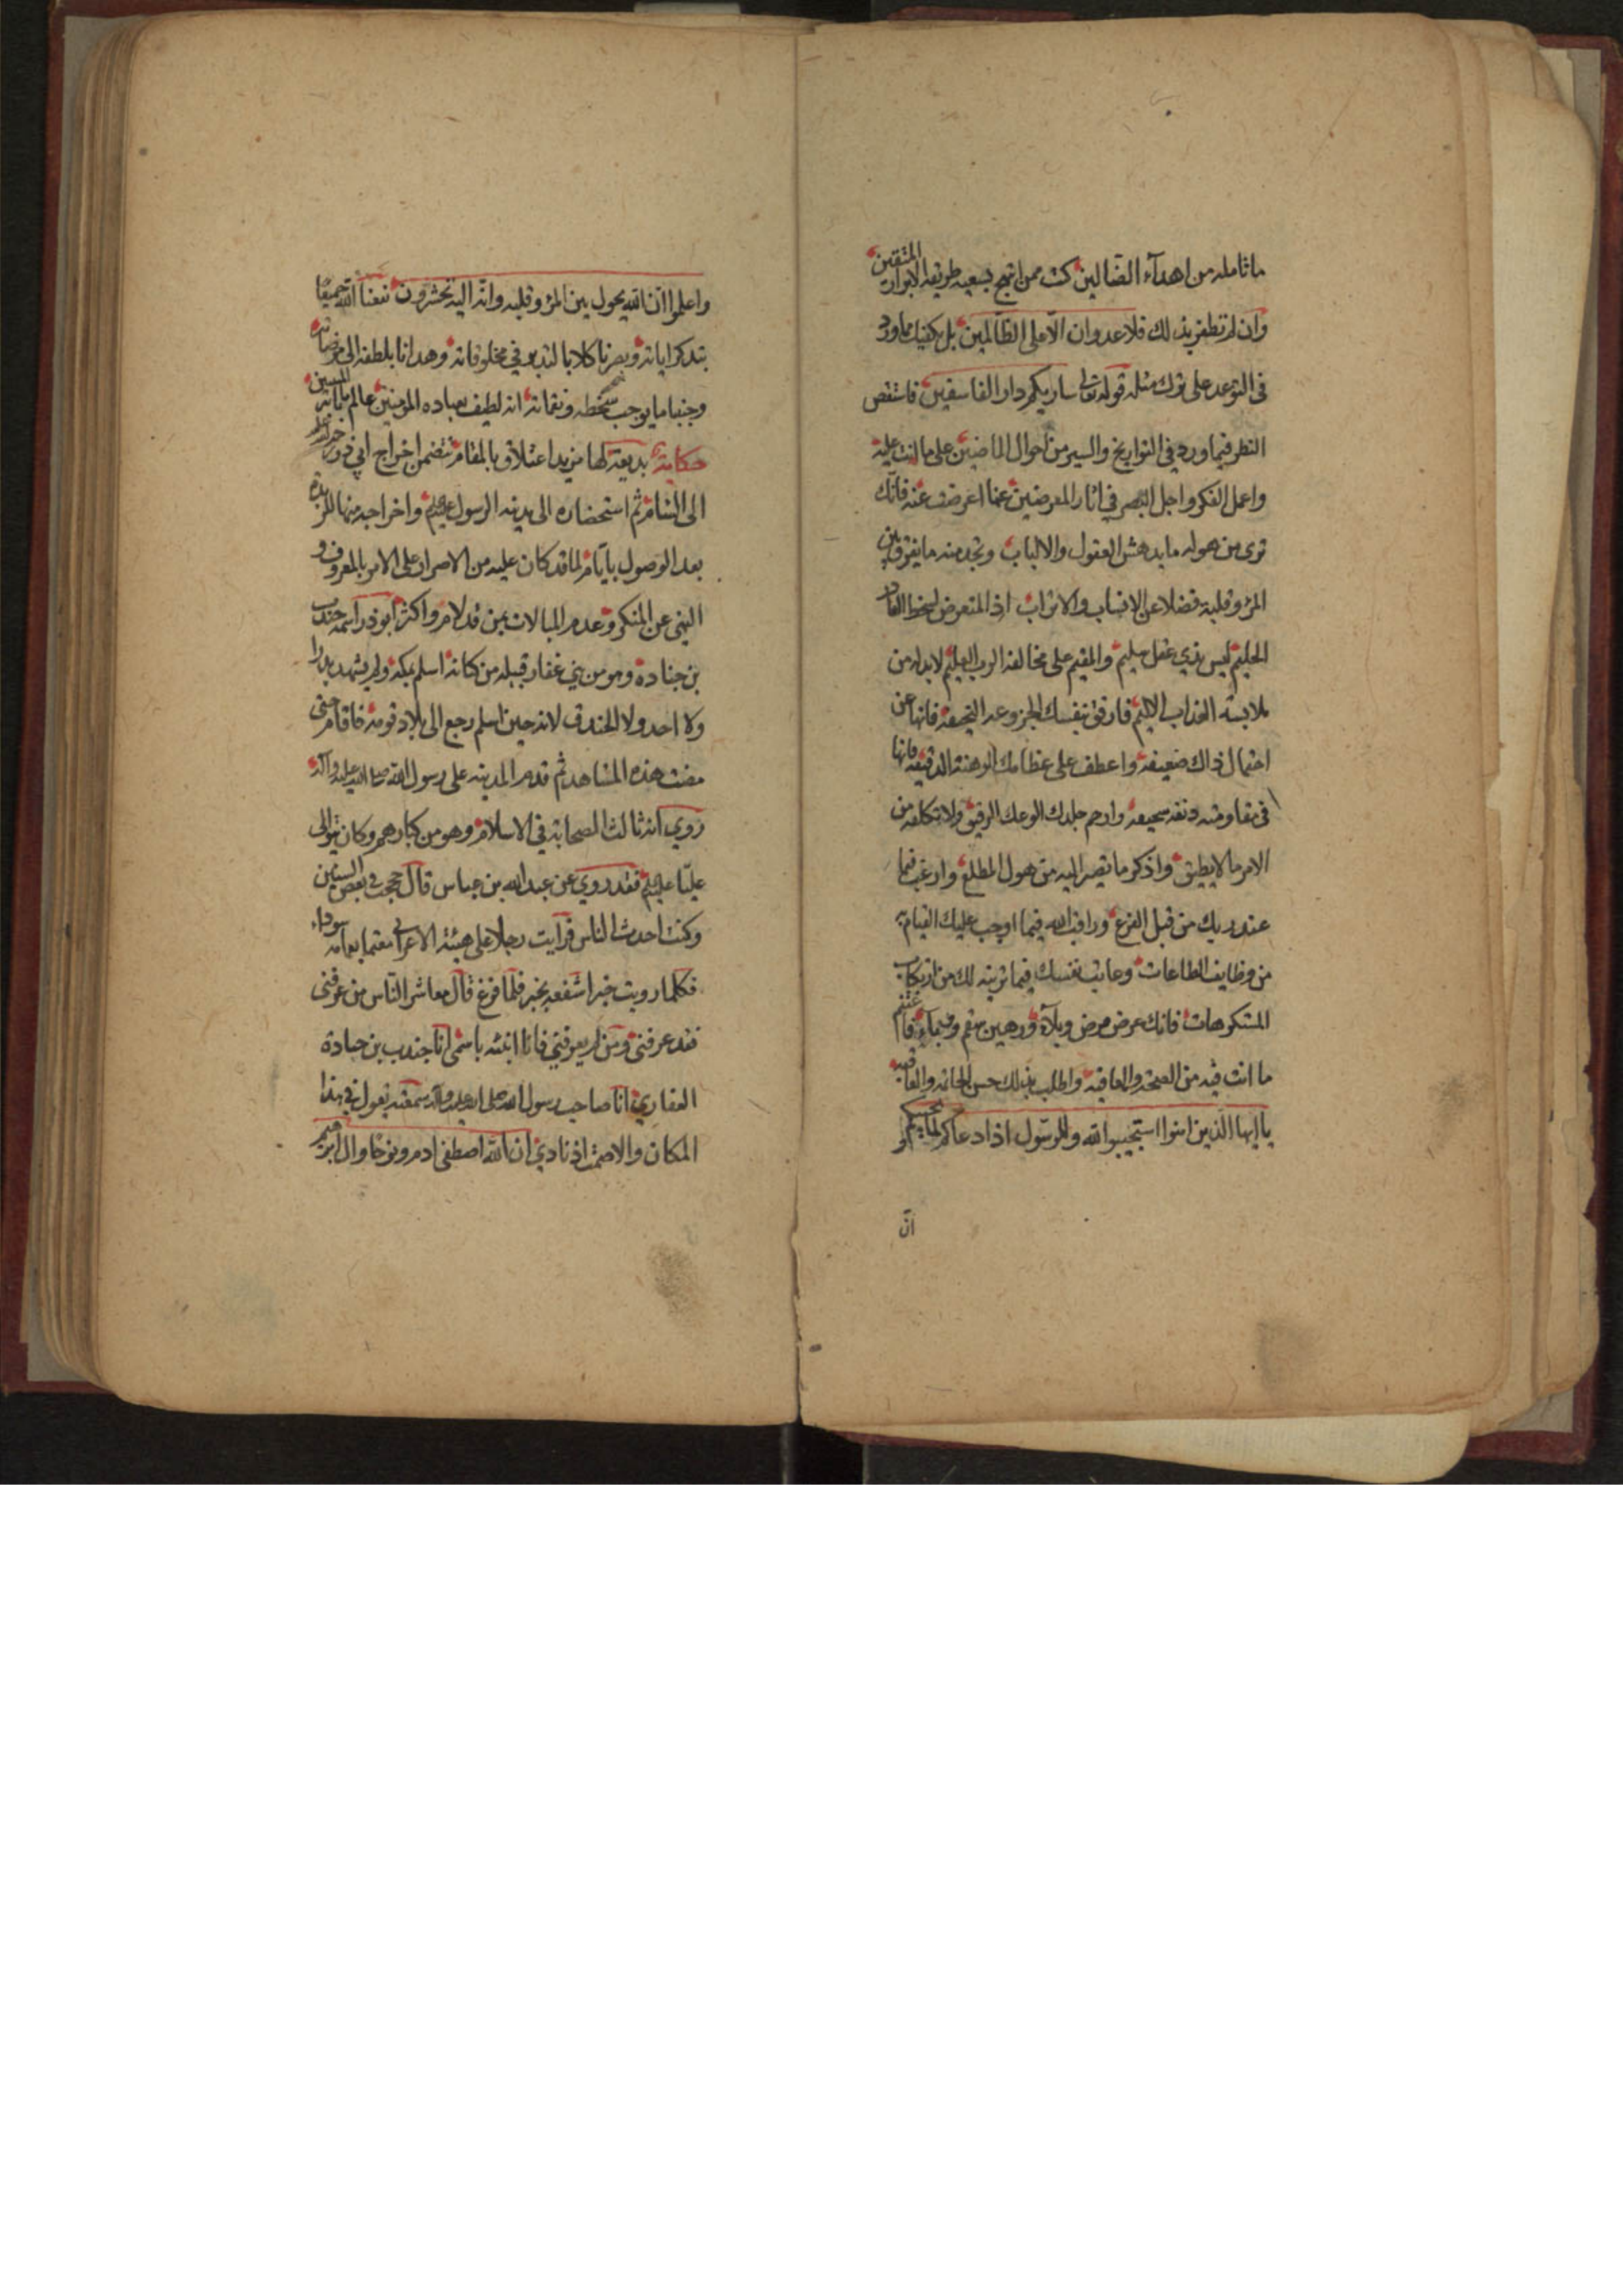 ما تأمله من اهدآء الضالين كنت ممن انتهج بسعيه طريقة الابرار المتقين
وان لم تظفر بذلك فلا عدوان الا على الظالمين بل يكفيك ما ورد
في التوعد على ترك مثله قوله تعالى ساريكم دار الفاسقين فاستقص
النظر فيما ورد في التواريخ والسير من احوال الماضين على ما انت عليه
واعمل الفكر واجل البصر في اثار المعرضين عما اعرضت عنه فانك
ترى من هوله ما يدهش العقول والالباب وتجد منه ما يفرق بين
المرؤ وقلبه فضلا عن الانساب والاتراب اذ المتعرض لسخط القادر
الحليم ليس بذي عقل سليم والمقيم على مخالفة الرب العليم لابد له من
ملابسة العذاب الاليم فارفق بنفسك العجز وعد النحيفة فانها عن
احتمال ذاك ضعيفة واعطف على عظامك الوهنة الدقيقة فانها
في مقاومته دنفه سحيقه وارحم جلدك الوعك الرقيق ولا تكلفه من
الامر ما لا يطيق واذكر ما تصير اليه من هول المطلع وارغب فيما
عند ربك من قبل الفزع وراقب الله فيما اوجب عليك القيام به
من وظايف الطاعات وعاتب نفسك فيما تزينه لك من ارتكاب
المستكرهات فانك عرض مرض وبلآء ورهين سقم فاغتنم
ما انت فيه من الصحة والعافية واطلب بذلك حسن الخاتمة والعاقبة
يا ايها الذين امنوا استجيبوا لله وللرسول اذا دعاكم لما يحييكم و
انّ
واعلموا ان الله يحول بين المرؤ وقلبه وانه اليه تحشرون نفعنا الله جميعًا
بتذكر اياته وبصرنا كلا بالتدبر في مخلوقاته وهدانا بلطفه الى مرضاته
وجنبنا ما يوجب سخطه ونقماته انه لطيف بعباده المؤمنين عالم
حكاية بديعة لها مزيد اعتلاق بالمقام تتضمن اخراج ابي ذر
الى الشام ثم استحضاره الى مدينة الرسول عليه السلم واخراجه منها للربذة
بعد الوصول بايام لما قد كان عليه من الاصرار على الامر بالمعروف و
النهي عن المنكر وعدم المبالات بمن قد لام واكثر ابو ذر اسمه جندب
بن جنادة وهو من بني غفار قبيله من كنانة اسلم بمكة ولم يشهد بدرا
ولا احد ولا الخندق لانه حين اسلم رجع الى بلاد قومه فاقام حتى
مضت هذه المشاهد ثم قدم المدينة على رسول الله صلى الله عليه وآله
روي انه ثالث الصحابة في الاسلام وهو من كبارهم وكان يتوالى
عليّا عليه السلم فقد روي عن عبد الله بن عباس قال حججت في بعض السنين
وكنت احدث الناس فرايت رجلا على هيئة الاعرابي معتما بعمامه سوداء
فكلما رويت خبرا شفعه بخبر فلما فرغ قال معاشر الناس من عرفني
فقد عرفني ومن لم يعرفني فانا انبئه باسمي انا جندب بن جنادة
الغفاري انا صاحب رسول الله صلى الله عليه وآله سمعته يقول في هذا
المكان والا صمتا اذنا دي ان الله اصطفى ادم ونوحا وال ابرهيم